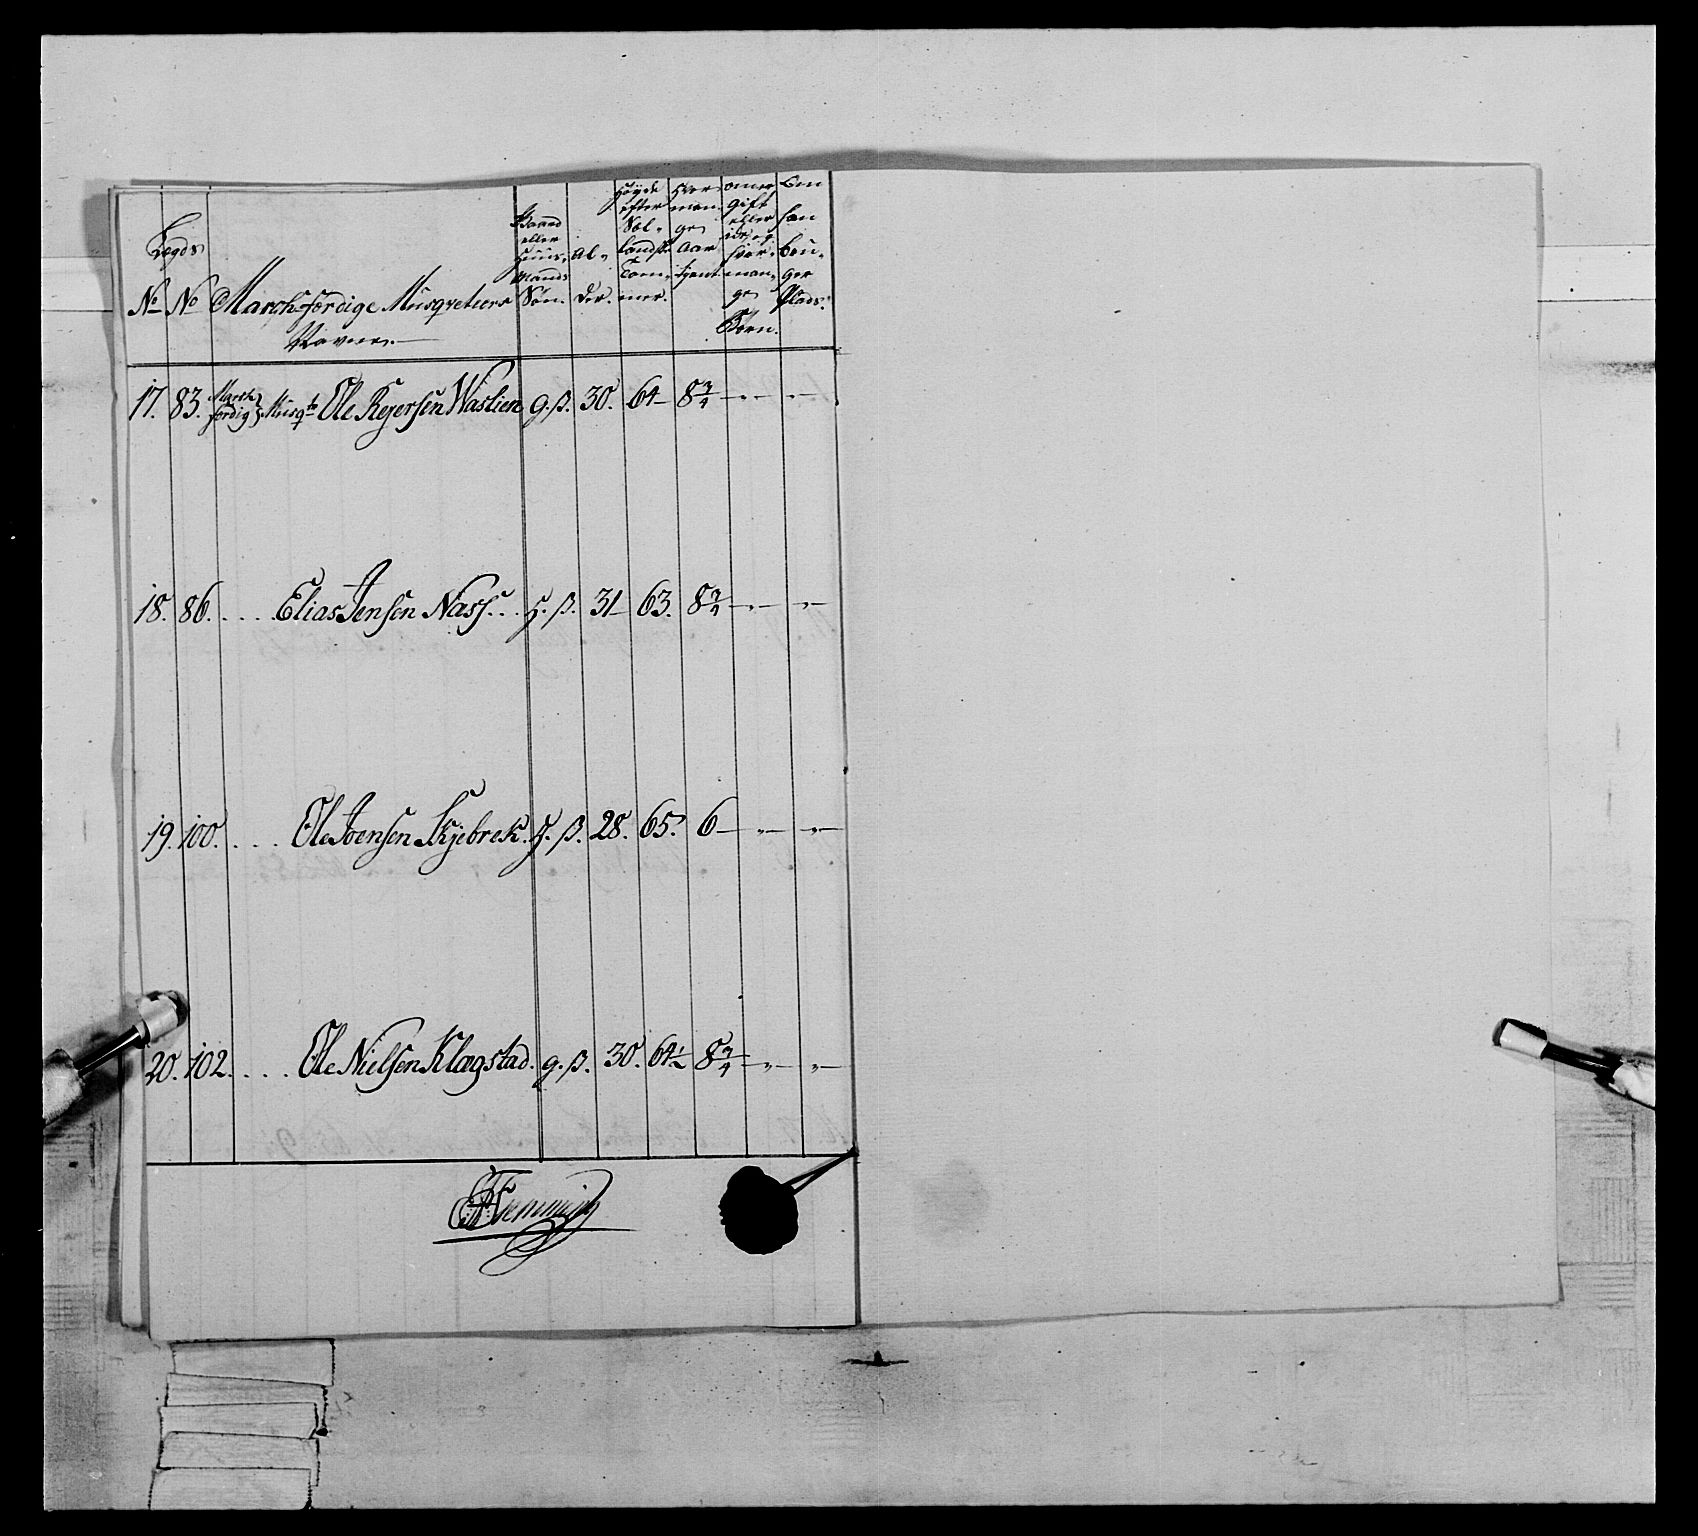 Lægds
No No Marchfærdige Musqveteers
Navne.
Gaard eller Huus- Mands Søn.
Al- der.
Høyde efter Sol- landsk Tom- mer.
Hvor man- ge Aar tient
om er Gift eller ide, og hvor man- ge Børn.
Om han boü- ger Plads.
17. 83. March færdig Musqtr Ole Reyersen Waslien g. ß. 30. 64 – 8 3/4 – " – – " –
18. 86. . . . . Elias Jensen Nass . . . H. ß. 31 – 63. 8 3/4 – " – – " –
19. 100. . . . . Ole Joensen Skjebrek. H. ß. 28. 65. 6 – – " – – " –
20. 102. . . . . Ole Nielsen Klagstad. g. ß. 30. 64 1/2 8 3/4 – " – – " –